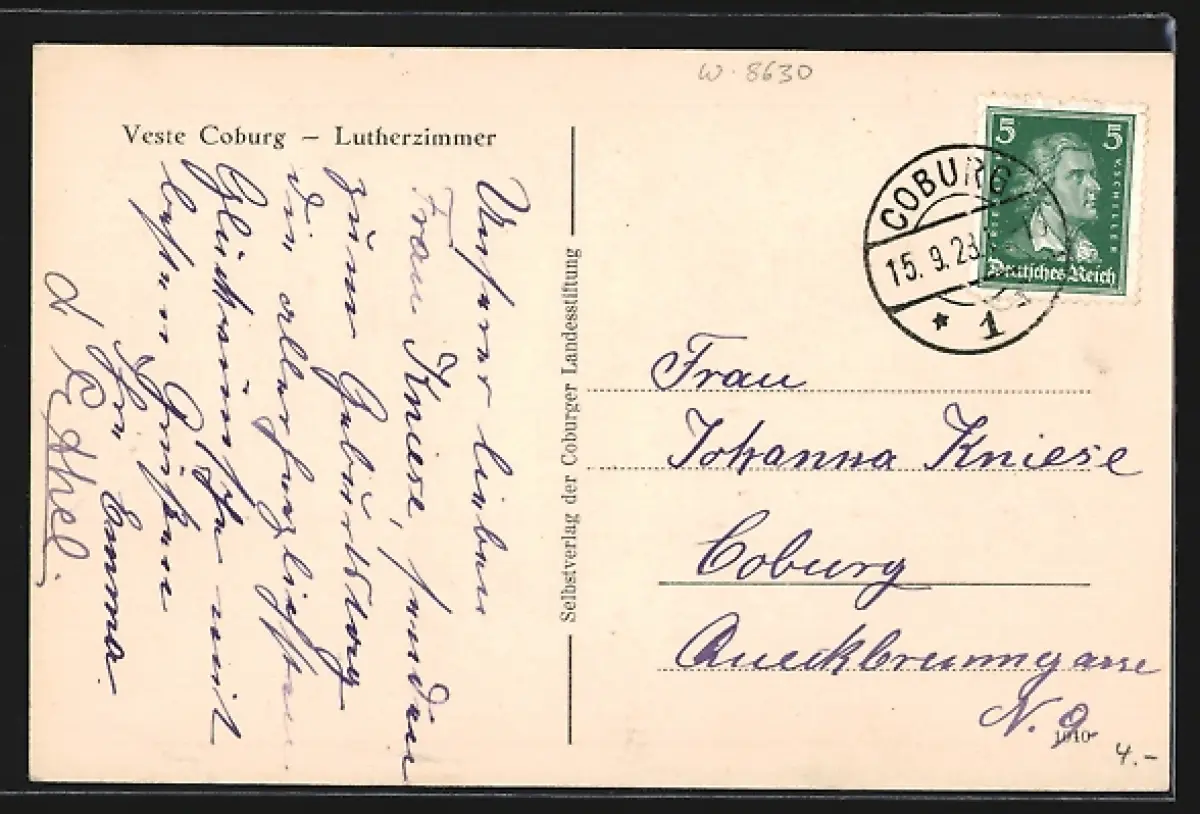 W. 8630
Veste Coburg – Lutherzimmer
Unserer lieben
Frau Kniese, senden
zum Geburtstag
die allerherzlichsten
Glückwünsche mit
besten Grüßen
Ihre Emma
Ethel.
Selbstverlag der Coburger Landesstiftung
5 5
F. v. SCHILLER
Deutsches Reich
COBURG
15.9.28
* 1
Frau
Johanna Kniese
Coburg
Queckbrunngasse
N. 9
1040
4.-